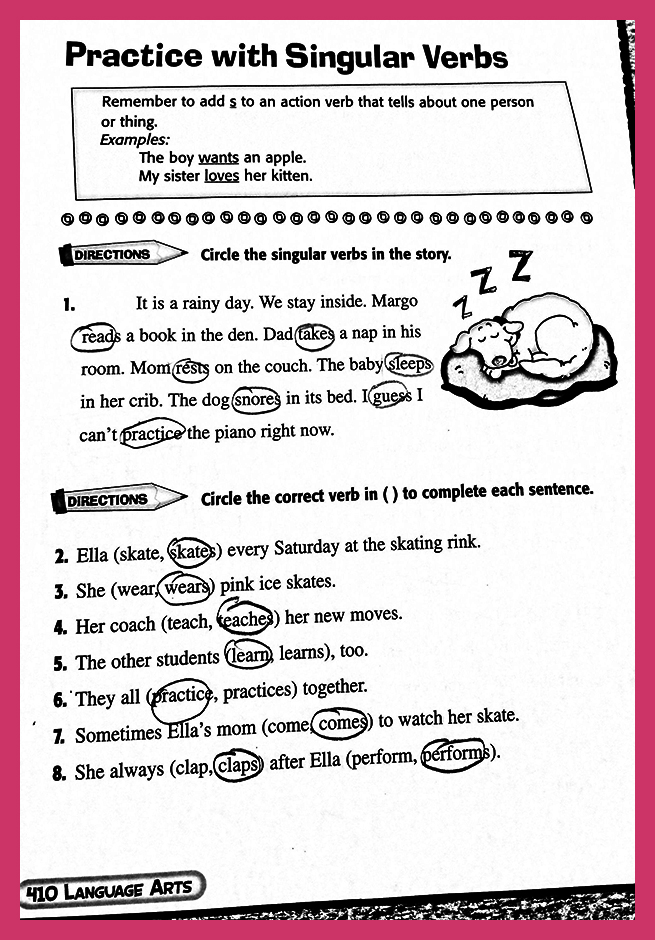 Practice with Singular Verbs
Remember to add s to an action verb that tells about one person
or thing.
Examples:
The boy wants an apple.
My sister loves her kitten.
DIRECTIONS Circle the singular verbs in the story.
Z Z Z
1. It is a rainy day. We stay inside. Margo
reads a book in the den. Dad takes a nap in his
room. Mom rests on the couch. The baby sleeps
in her crib. The dog snores in its bed. I guess I
can't practice the piano right now.
DIRECTIONS Circle the correct verb in ( ) to complete each sentence.
2. Ella (skate, skates) every Saturday at the skating rink.
3. She (wear, wears) pink ice skates.
4. Her coach (teach, teaches) her new moves.
5. The other students (learn, learns), too.
6. They all (practice, practices) together.
7. Sometimes Ella's mom (come, comes) to watch her skate.
8. She always (clap, claps) after Ella (perform, performs).
410 LANGUAGE ARTS